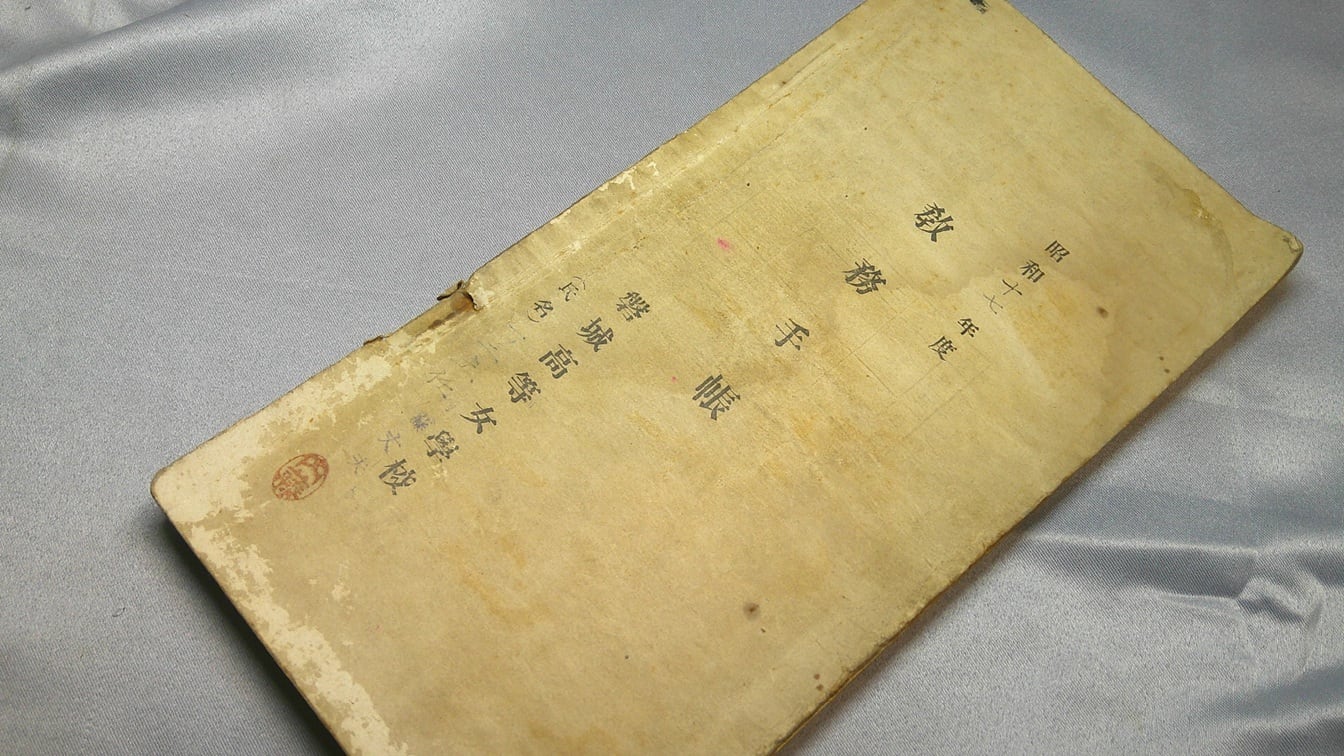 昭和十七年度
敎務手帳
磐城高等女學校
(氏名)